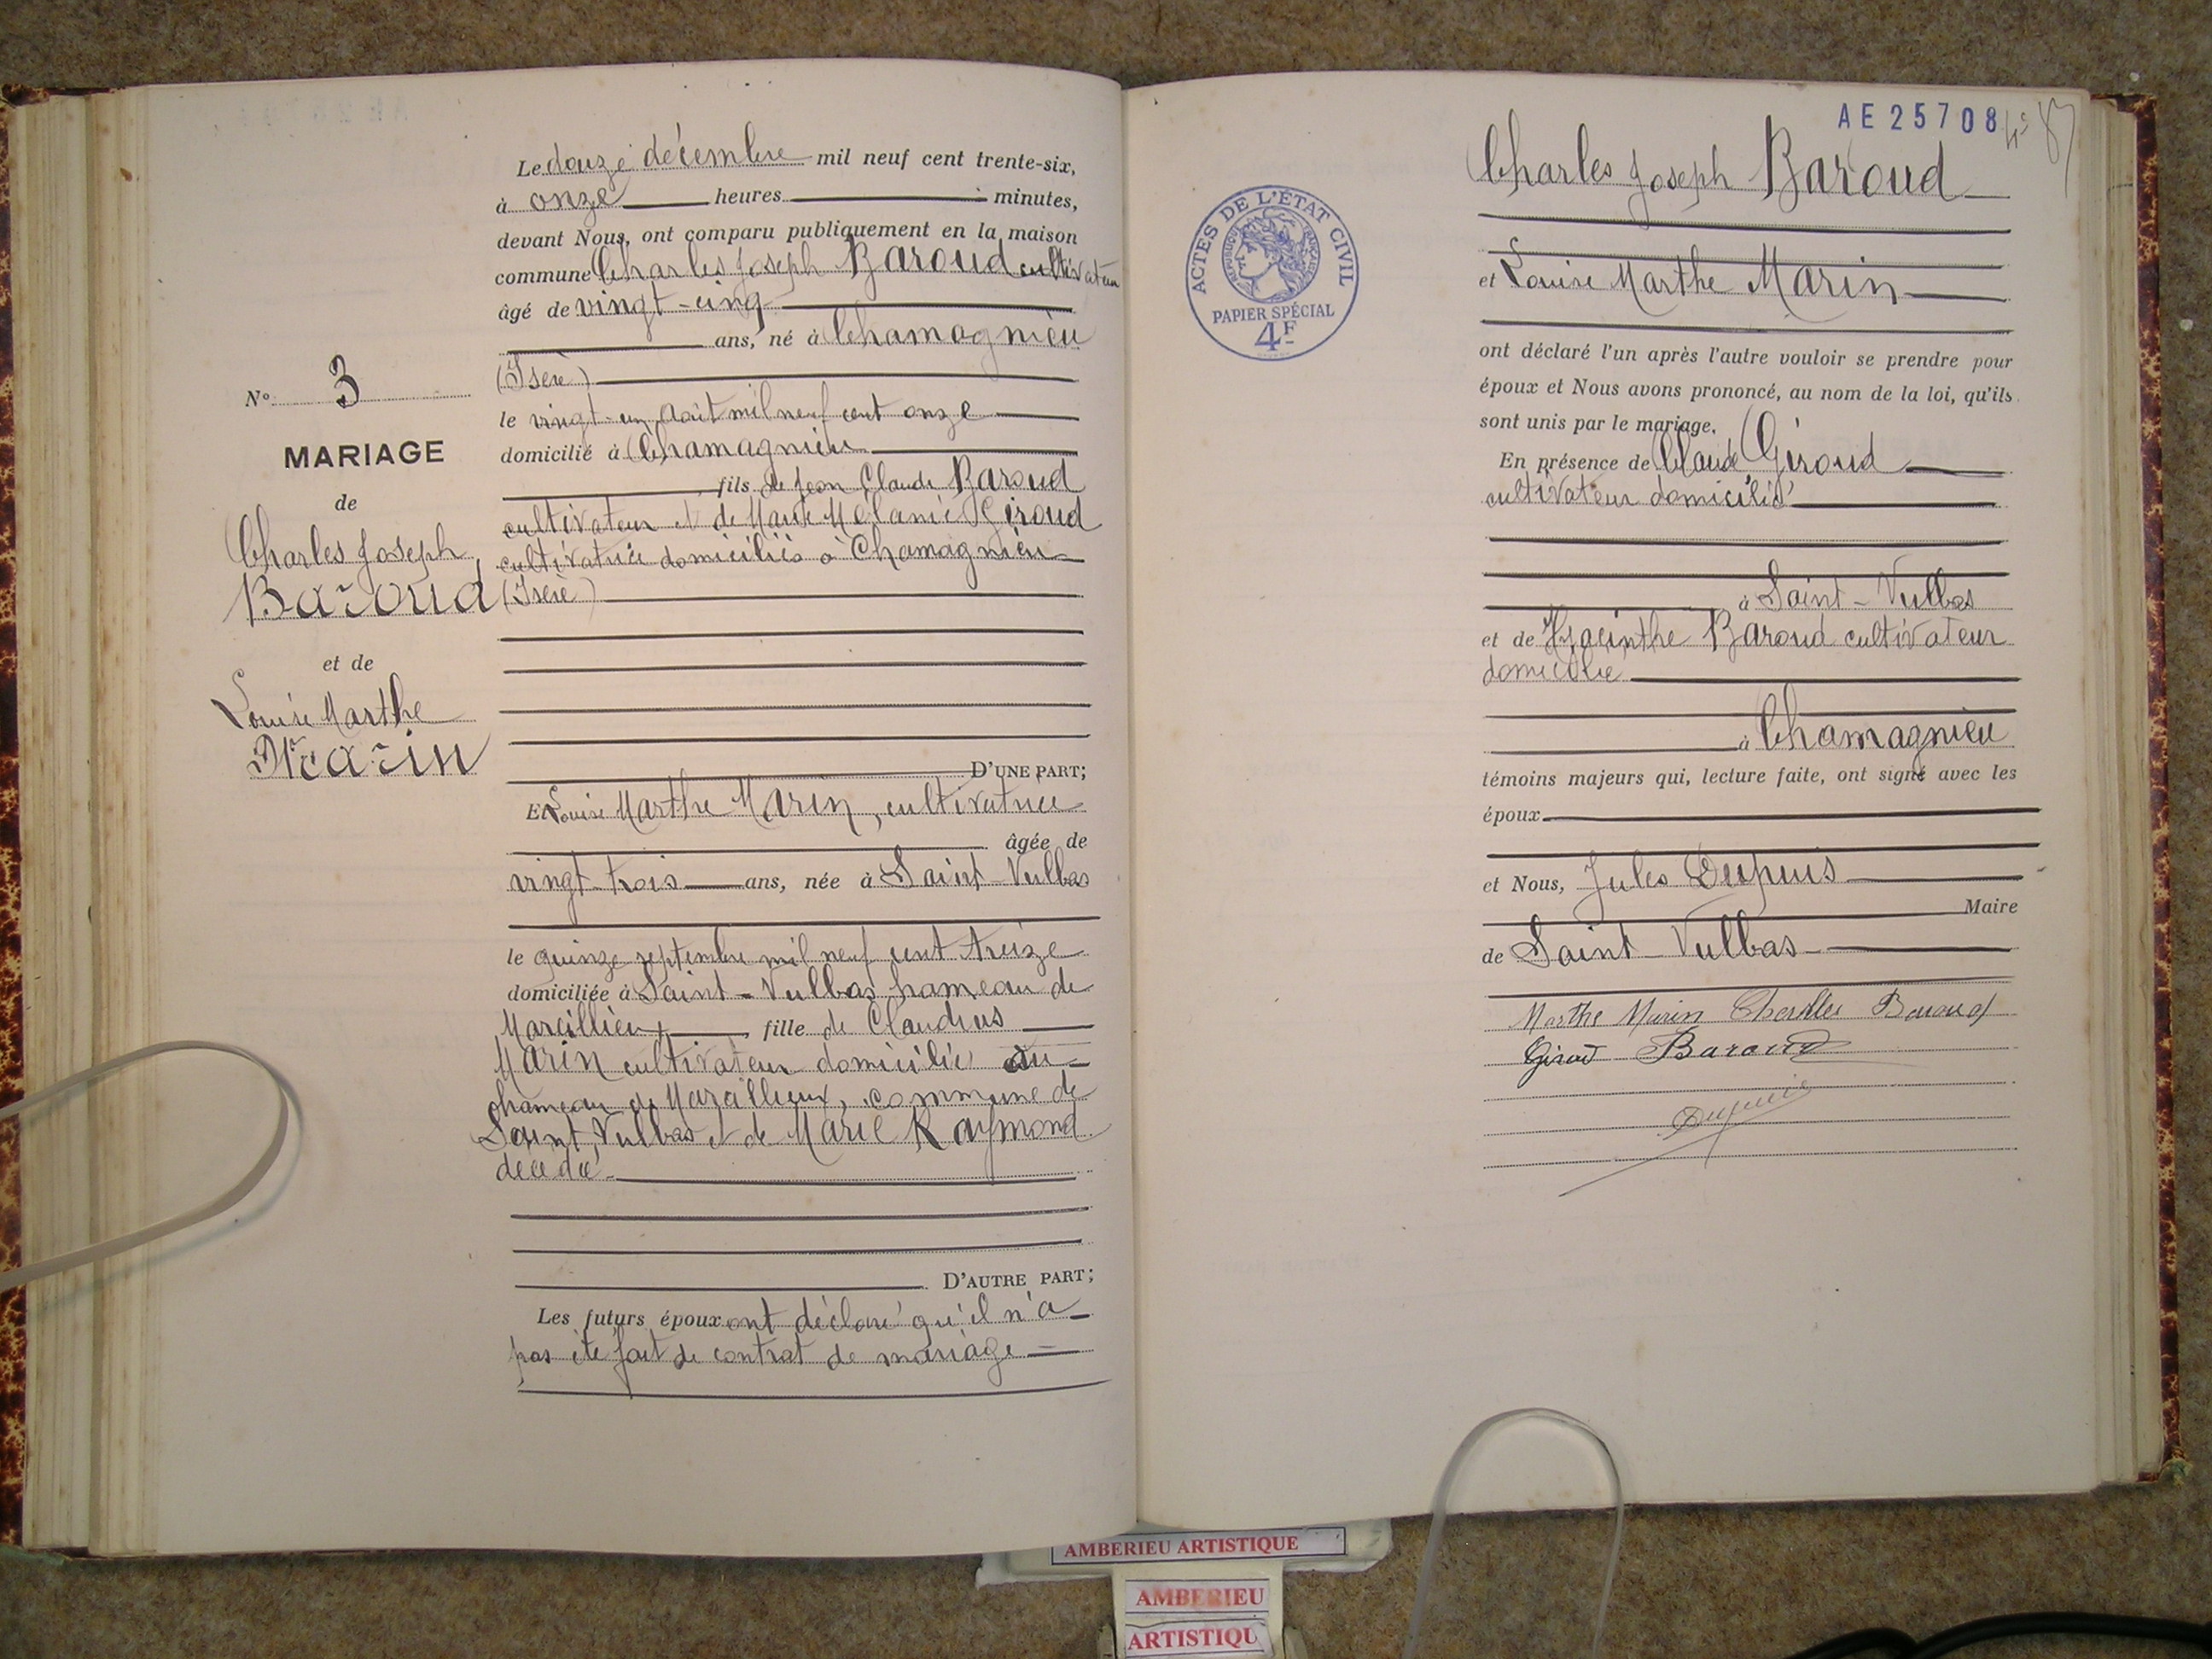 Le douze décembre mil neuf cent trente-six,
à onze heures minutes,
devant Nous, ont comparu publiquement en la maison
commune Charles Joseph Baroud cultivateur
âgé de vingt-cinq
ans, né à Chamagnieu
(Isère)
le vingt-un août mil neuf cent onze
domicilié à Chamagnieu
fils de Jean Claude Baroud
cultivateur et de Marie Mélanie Giroud
cultivatrice domiciliés à Chamagnieu
(Isère)
D'UNE PART;
Et Louise Marthe Marin, cultivatrice
âgée de
vingt-trois ans, née à Saint-Vulbas
le quinze septembre mil neuf cent treize
domiciliée à Saint-Vulbas hameau de
Marcillieux fille de Claudius
Marin cultivateur domicilié au
hameau de Marcillieux, commune de
Saint Vulbas et de Marie Raymond
décédée
D'AUTRE PART;
Les futurs époux ont déclaré qu'il n'a
pas été fait de contrat de mariage
N° 3
MARIAGE
de
Charles Joseph
Baroud
et de
Louise Marthe
Marin
AE 25708
87
Charles Joseph Baroud
et Louise Marthe Marin
ont déclaré l'un après l'autre vouloir se prendre pour
époux et Nous avons prononcé, au nom de la loi, qu'ils
sont unis par le mariage.
En présence de Claude Giroud
cultivateur domicilié
à Saint-Vulbas
et de Hyacinthe Baroud cultivateur
domicilié
à Chamagnieu
témoins majeurs qui, lecture faite, ont signé avec les
époux
et Nous, Jules Dupuis
Maire
de Saint-Vulbas
Marthe Marin Charles Baroud
Giroud Baroud
Dupuis
ACTES DE L'ÉTAT CIVIL
RÉPUBLIQUE FRANÇAISE
PAPIER SPÉCIAL
4F
AMBERIEU ARTISTIQUE
AMBERIEU
ARTISTIQU